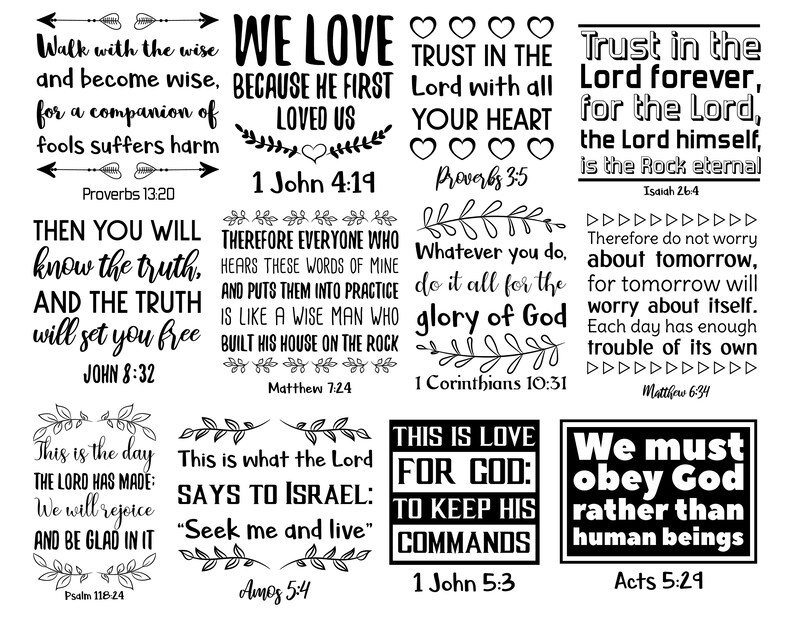 Walk with the wise
and become wise,
for a companion of
fools suffers harm
Proverbs 13:20
WE LOVE
BECAUSE HE FIRST
LOVED US
1 John 4:19
TRUST IN THE
Lord with all
YOUR HEART
Proverbs 3:5
Trust in the
Lord forever,
for the Lord,
the Lord himself,
is the Rock eternal
Isaiah 26:4
THEN YOU WILL
know the truth,
AND THE TRUTH
will set you free
JOHN 8:32
THEREFORE EVERYONE WHO
HEARS THESE WORDS OF MINE
AND PUTS THEM INTO PRACTICE
IS LIKE A WISE MAN WHO
BUILT HIS HOUSE ON THE ROCK
Matthew 7:24
Whatever you do,
do it all for the
glory of God
1 Corinthians 10:31
Therefore do not worry
about tomorrow,
for tomorrow will
worry about itself.
Each day has enough
trouble of its own
Matthew 6:34
This is the day
THE LORD HAS MADE;
We will rejoice
AND BE GLAD IN IT
Psalm 118:24
This is what the Lord
SAYS TO ISRAEL:
“Seek me and live”
Amos 5:4
THIS IS LOVE
FOR GOD:
TO KEEP HIS
COMMANDS
1 John 5:3
We must
obey God
rather than
human beings
Acts 5:29